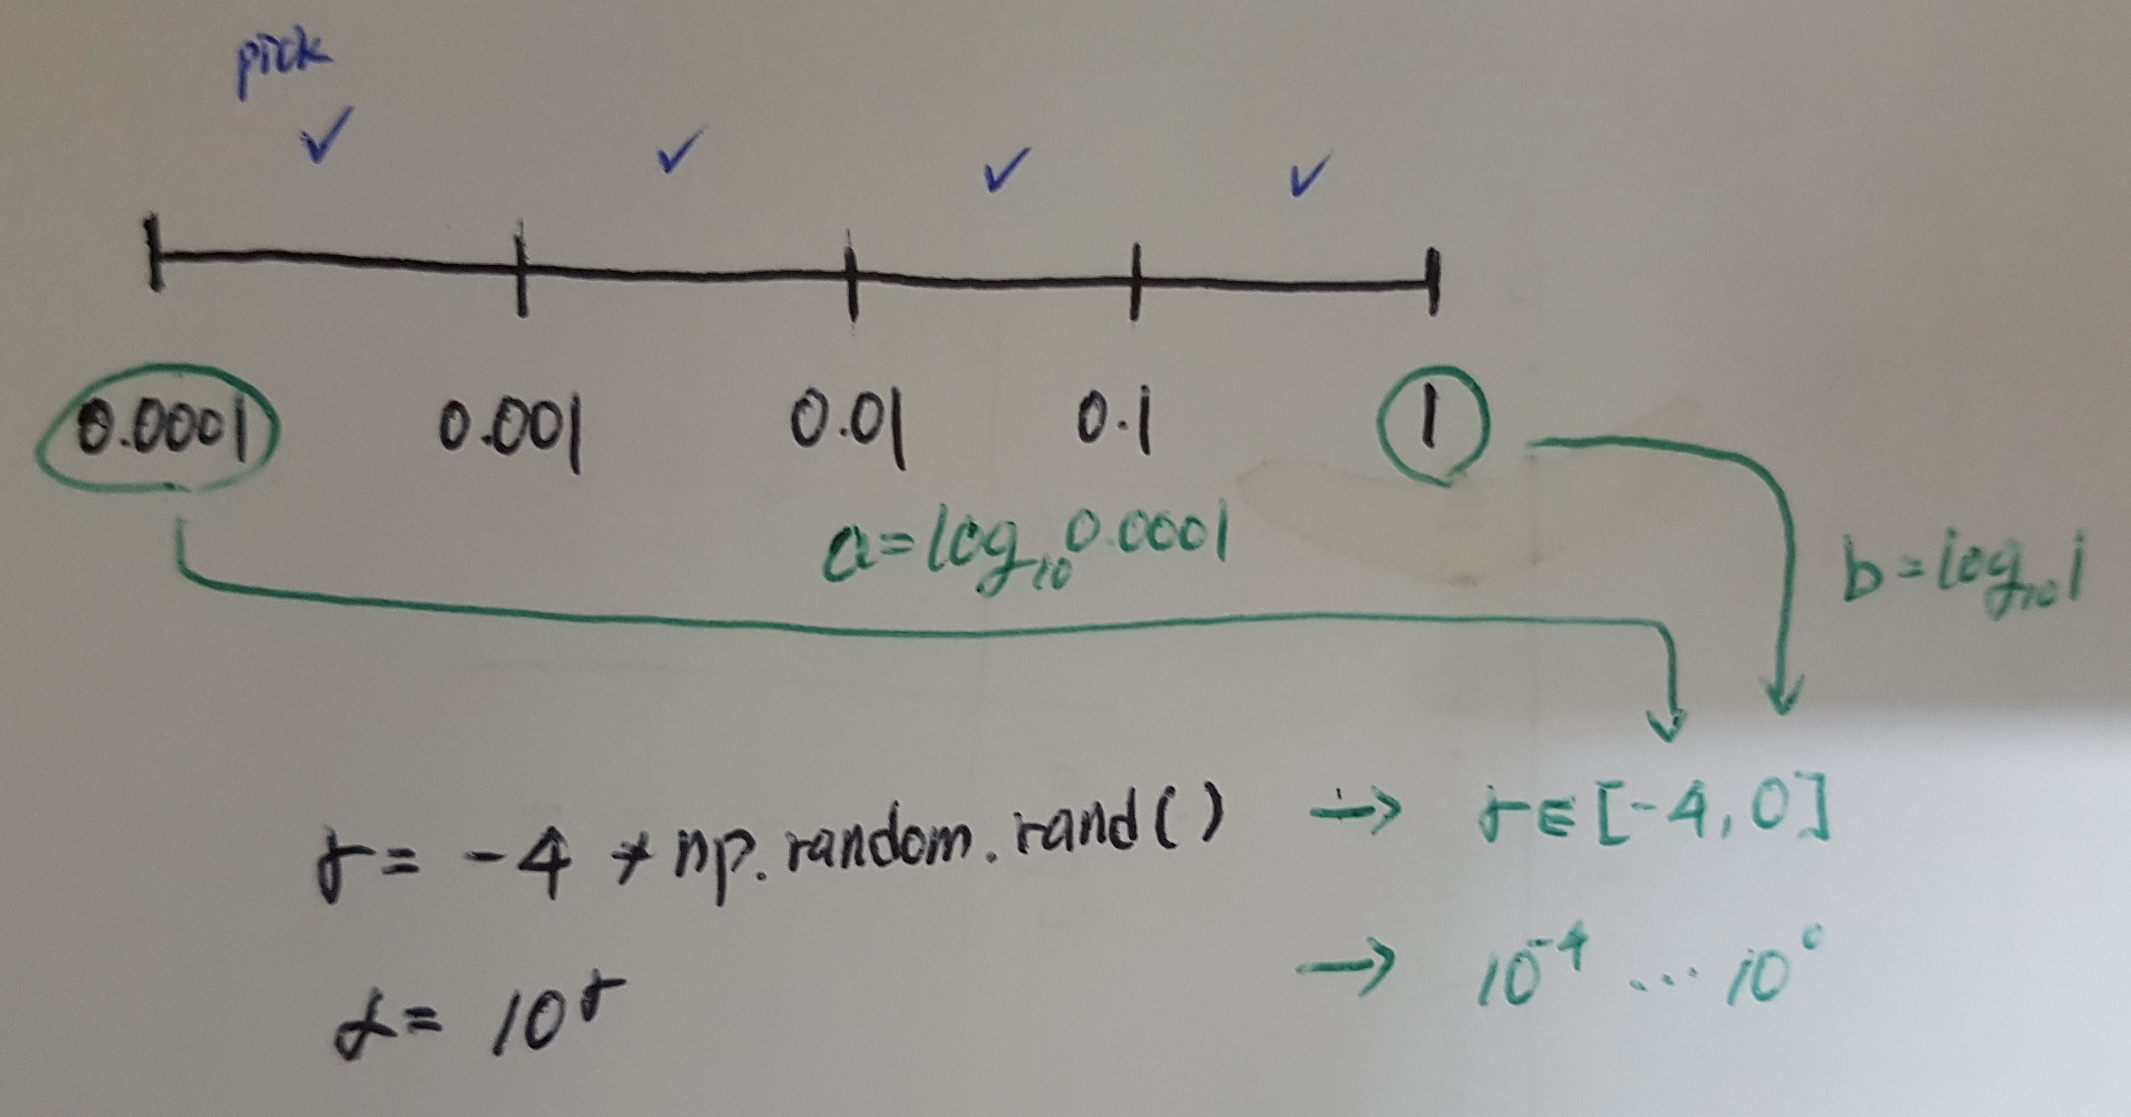 pick
✓ ✓ ✓ ✓
0.0001 0.001 0.01 0.1 1
a=log₁₀0.0001
b=log₁₀1
r= -4 * np.random.rand() → r∈[-4,0]
α= 10ʳ → 10⁻⁴ ... 10⁰